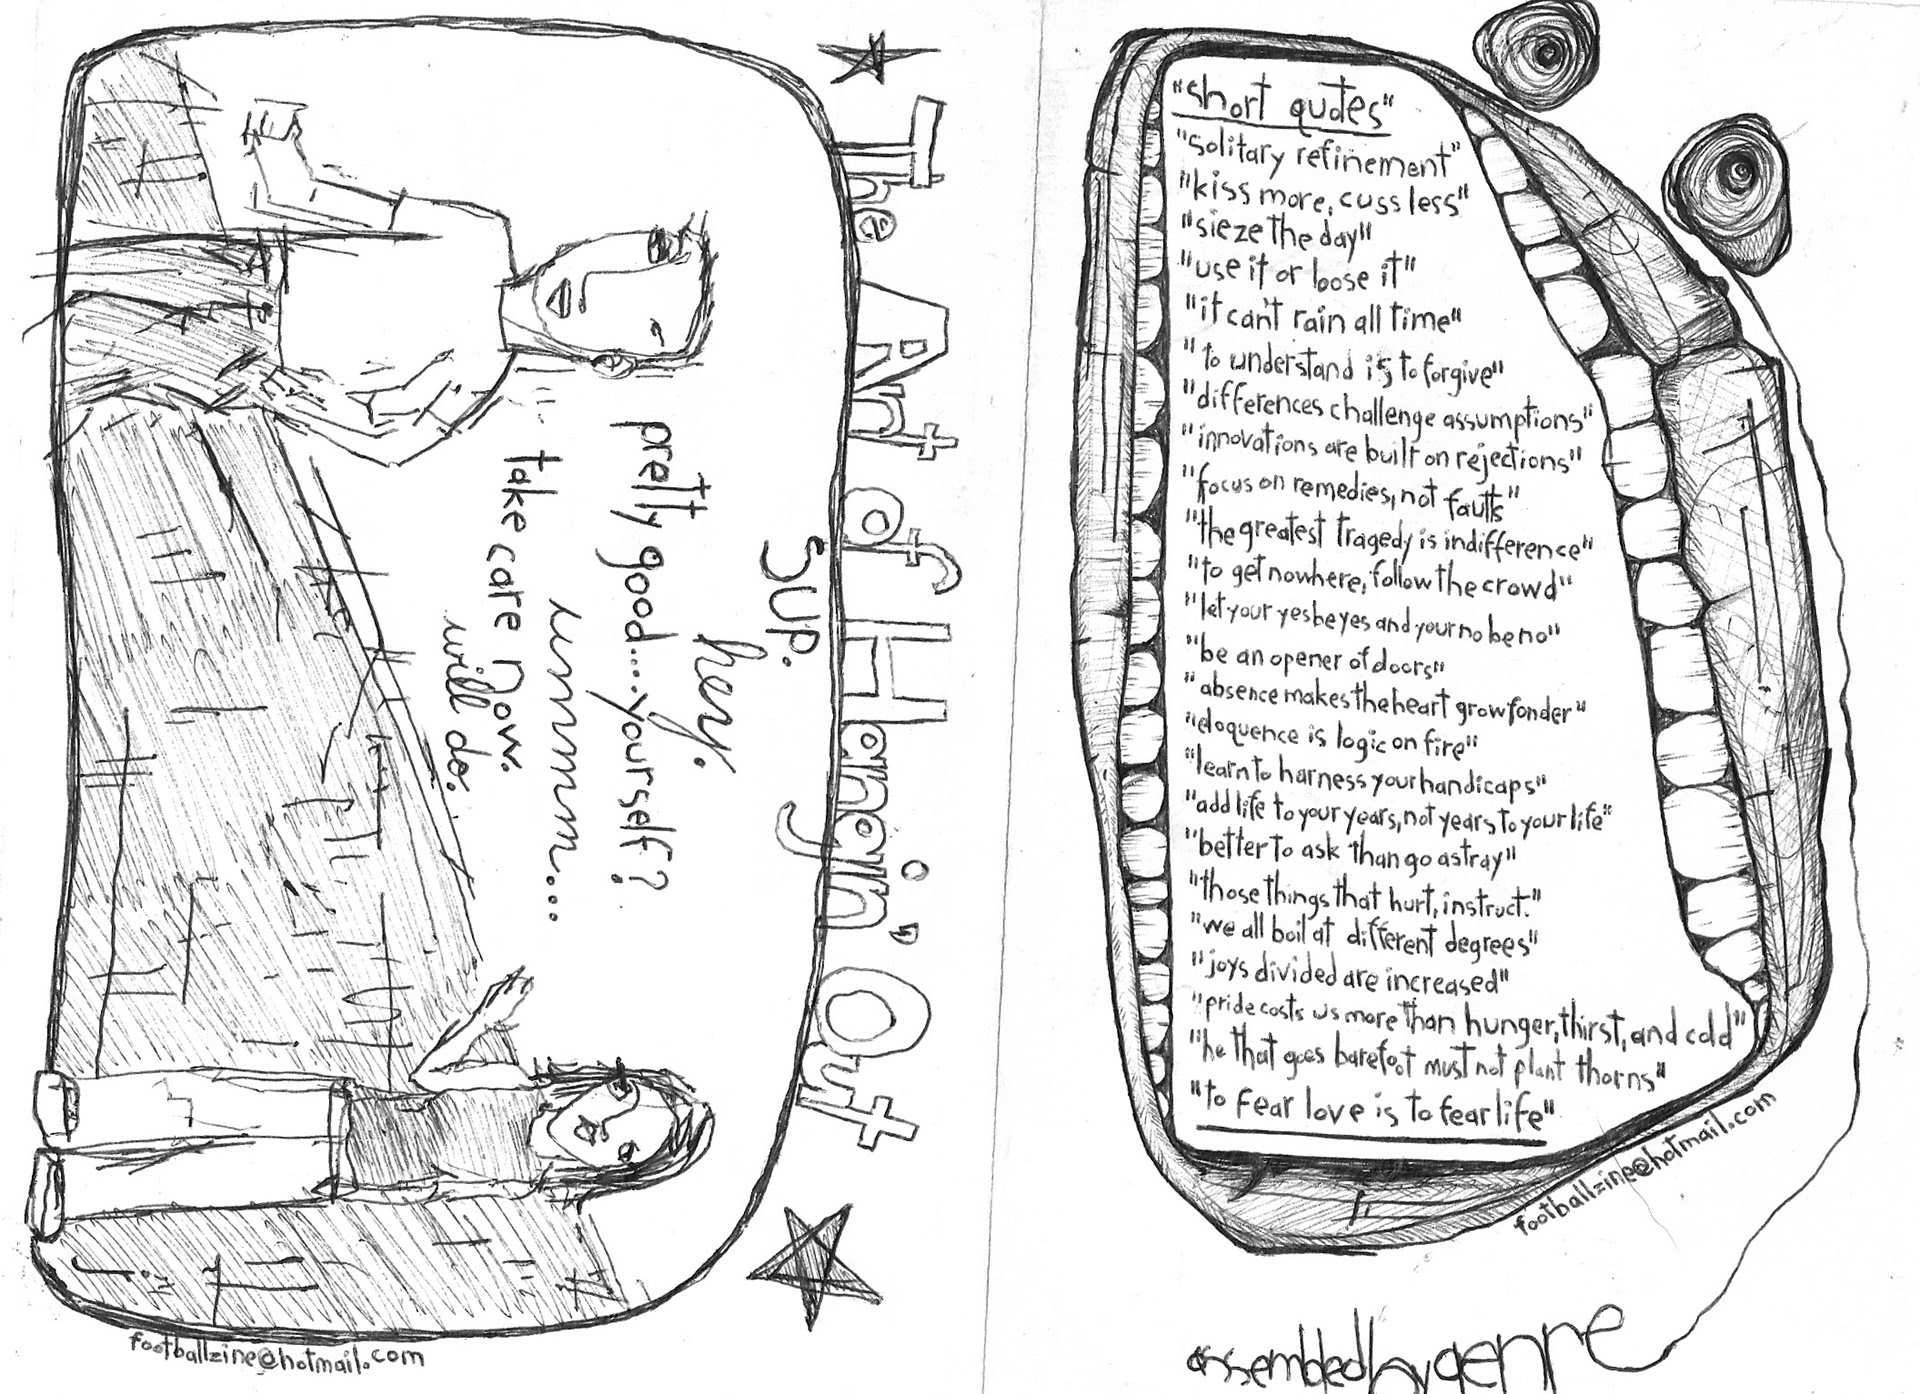 The Art of Hangin' Out
Sup.
hey.
pretty good....yourself?
ummmm...
take care now.
will do.
footballzine@hotmail.com
"short quotes"
"solitary refinement"
"kiss more, cuss less"
"sieze the day"
"use it or loose it"
"it can't rain all time"
"to understand is to forgive"
"differences challenge assumptions"
"innovations are built on rejections"
"focus on remedies, not faults"
"the greatest tragedy is indifference"
"to get nowhere, follow the crowd"
"let your yes be yes and your no be no"
"be an opener of doors"
"absence makes the heart grow fonder"
"eloquence is logic on fire"
"learn to harness your handicaps"
"add life to your years, not years to your life"
"better to ask than go astray"
"those things that hurt, instruct."
"we all boil at different degrees"
"joys divided are increased"
"pride costs us more than hunger, thirst, and cold"
"he that goes barefoot must not plant thorns"
"to fear love is to fear life"
footballzine@hotmail.com
assembled by genre